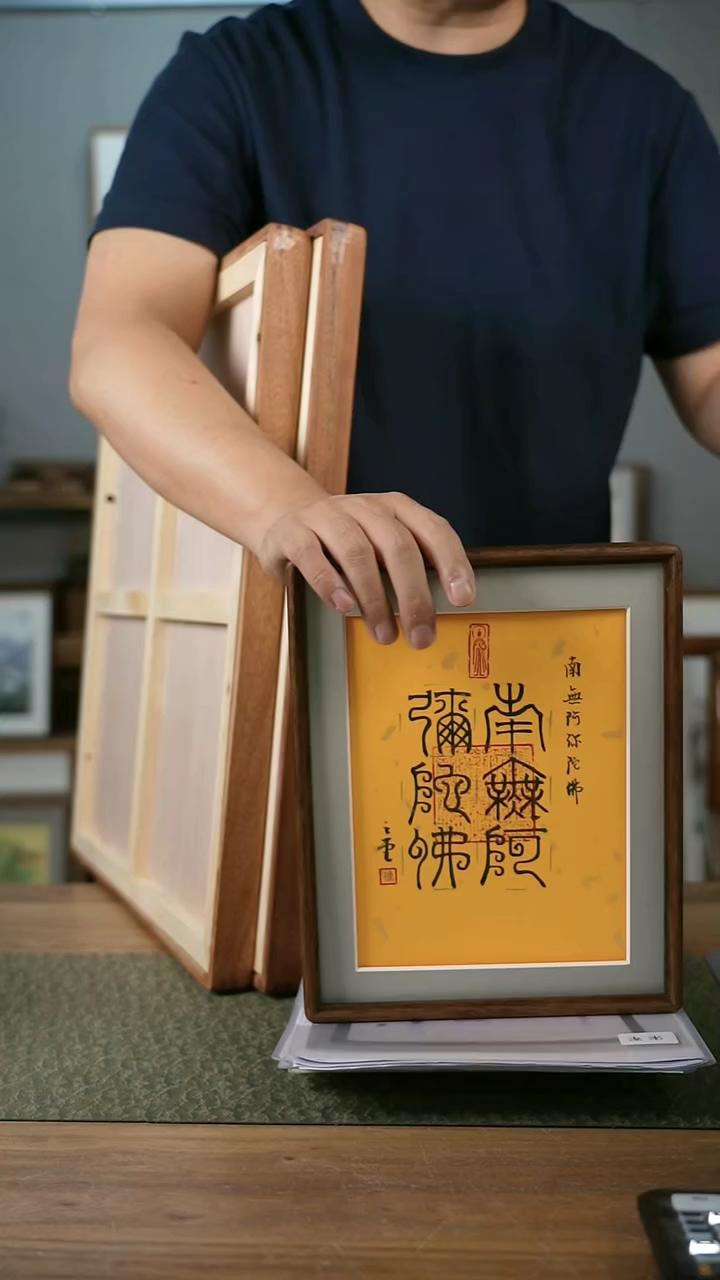 南無阿
彌陀佛
南無阿弥陀佛